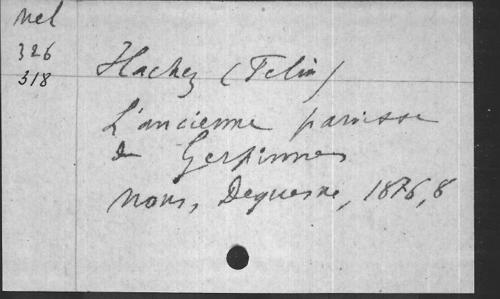 Mel
326
318
Hachez (Félix)
L'ancienne paroisse
de Gerpinnes
Mons, Dequesne, 1876, 8